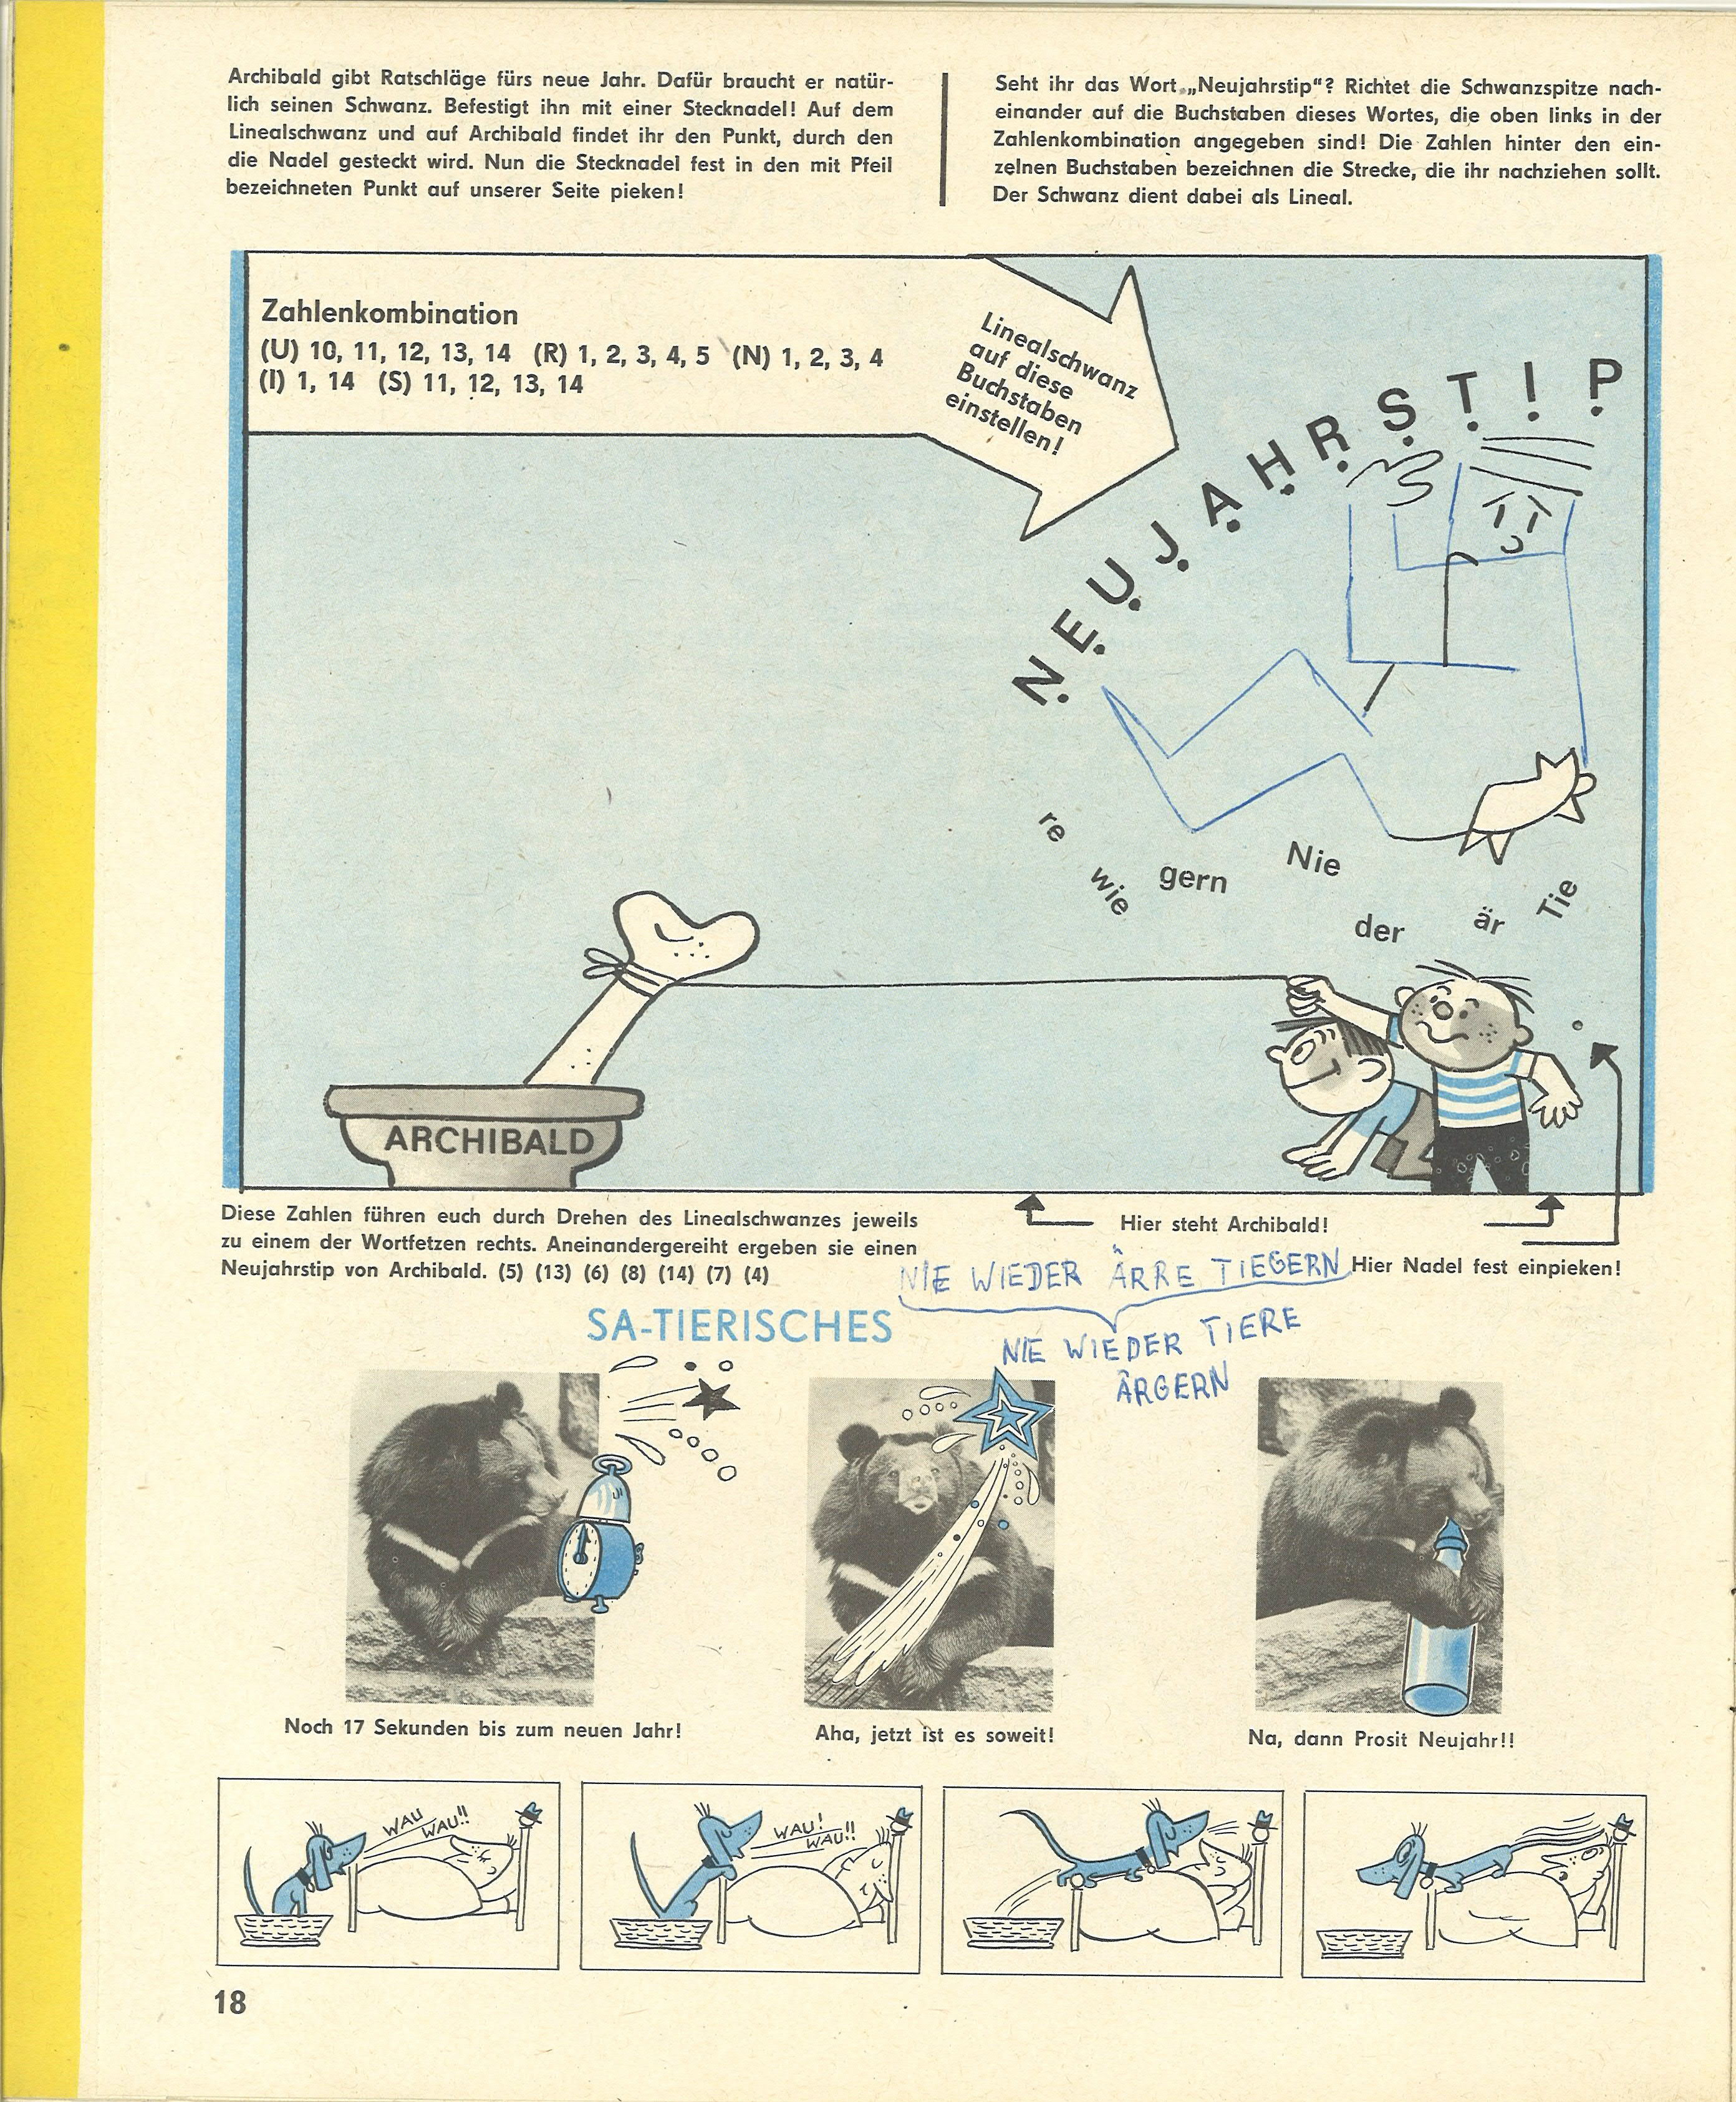 Archibald gibt Ratschläge fürs neue Jahr. Dafür braucht er natür-
lich seinen Schwanz. Befestigt ihn mit einer Stecknadel! Auf dem
Linealschwanz und auf Archibald findet ihr den Punkt, durch den
die Nadel gesteckt wird. Nun die Stecknadel fest in den mit Pfeil
bezeichneten Punkt auf unserer Seite pieken!
Seht ihr das Wort „Neujahrstip“? Richtet die Schwanzspitze nach-
einander auf die Buchstaben dieses Wortes, die oben links in der
Zahlenkombination angegeben sind! Die Zahlen hinter den ein-
zelnen Buchstaben bezeichnen die Strecke, die ihr nachziehen sollt.
Der Schwanz dient dabei als Lineal.
Zahlenkombination
(U) 10, 11, 12, 13, 14 (R) 1, 2, 3, 4, 5 (N) 1, 2, 3, 4
(I) 1, 14 (S) 11, 12, 13, 14
Linealschwanz
auf diese
Buchstaben
einstellen!
NEUJAHRSTIP
re
wie
gern
Nie
der
är
Tie
ARCHIBALD
Diese Zahlen führen euch durch Drehen des Linealschwanzes jeweils
zu einem der Wortfetzen rechts. Aneinandergereiht ergeben sie einen
Neujahrstip von Archibald. (5) (13) (6) (8) (14) (7) (4)
Hier steht Archibald!
Hier Nadel fest einpieken!
NIE WIEDER ÄRRE TIEGERN
NIE WIEDER TIERE
ÄRGERN
SA-TIERISCHES
Noch 17 Sekunden bis zum neuen Jahr!
Aha, jetzt ist es soweit!
Na, dann Prosit Neujahr!!
WAU
WAU!!
WAU!
WAU!!
18